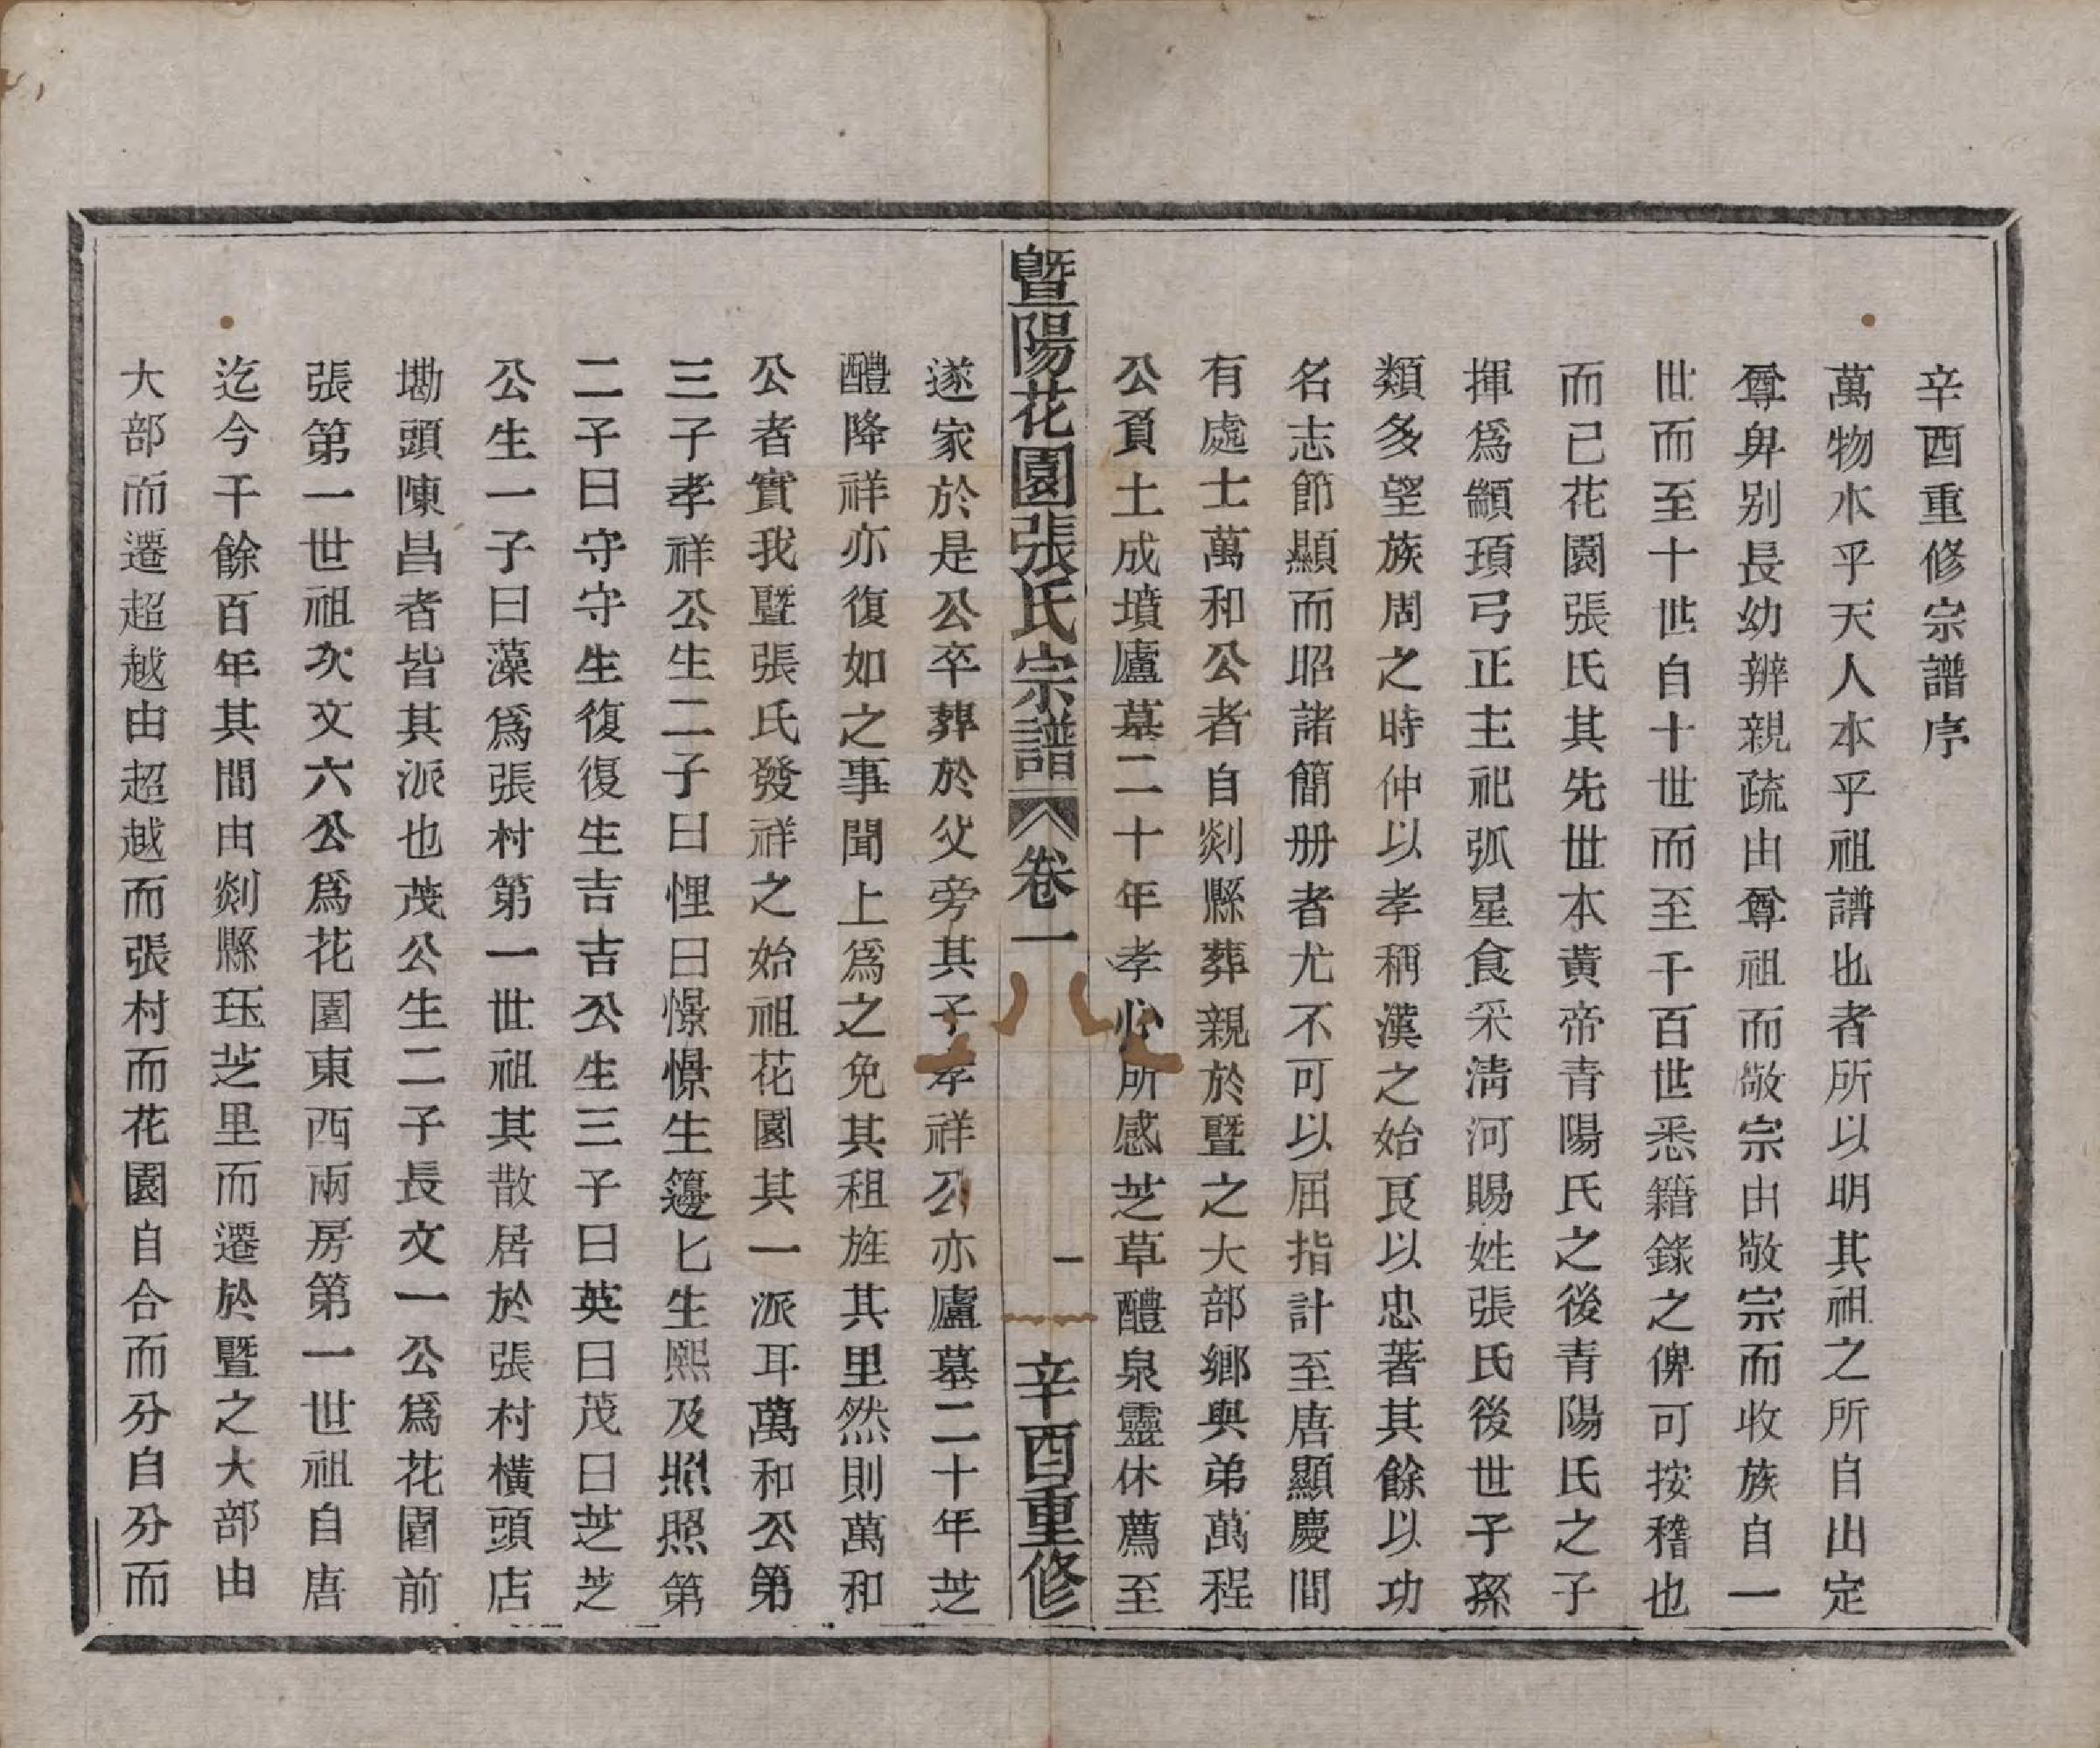 辛酉重修宗譜序
萬物水乎天人本乎祖譜也者所以明其祖之所自出定
尊卑别長幼辨親疏由尊祖而敬宗由敬宗而收族自一
世而至十世自十世而至千百世悉籍錄之俾可按稽也
而已花園張氏其先世本黄帝青陽氏之後青陽氏之子
揮爲顓頊弓正主祀弧星食采淸河賜姓張氏後世子孫
類多望族周之時仲以孝稱漢之始良以忠著其餘以功
名志節顯而昭諸簡册者尤不可以屈指計至唐顯慶間
有處士萬和公者自剡縣葬親於曁之大部鄉與弟萬程
公負土成墳廬墓二十年孝心所感芝草醴泉靈休薦至
曁陽花園張氏宗譜 卷一 一 辛酉重修
遂家於是公卒葬於父旁其子孝祥公亦廬墓二十年芝
醴降祥亦復如之事聞上爲之免其租旌其里然則萬和
公者實我曁張氏發祥之始祖花園其一派耳萬和公第
三子孝祥公生二子曰悝曰憬憬生籩匕生熙及照照第
二子曰守守生復復生吉吉公生三子曰英曰茂曰芝芝
公生一子曰藻爲張村第一世祖其散居於張村橫頭店
墈頭陳昌者皆其派也茂公生二子長文一公爲花園前
張第一世祖次文六公爲花園東西兩房第一世祖自唐
迄今千餘百年其間由剡縣珏芝里而遷於曁之大部由
大部而遷超越由超越而張村而花園自合而分自分而